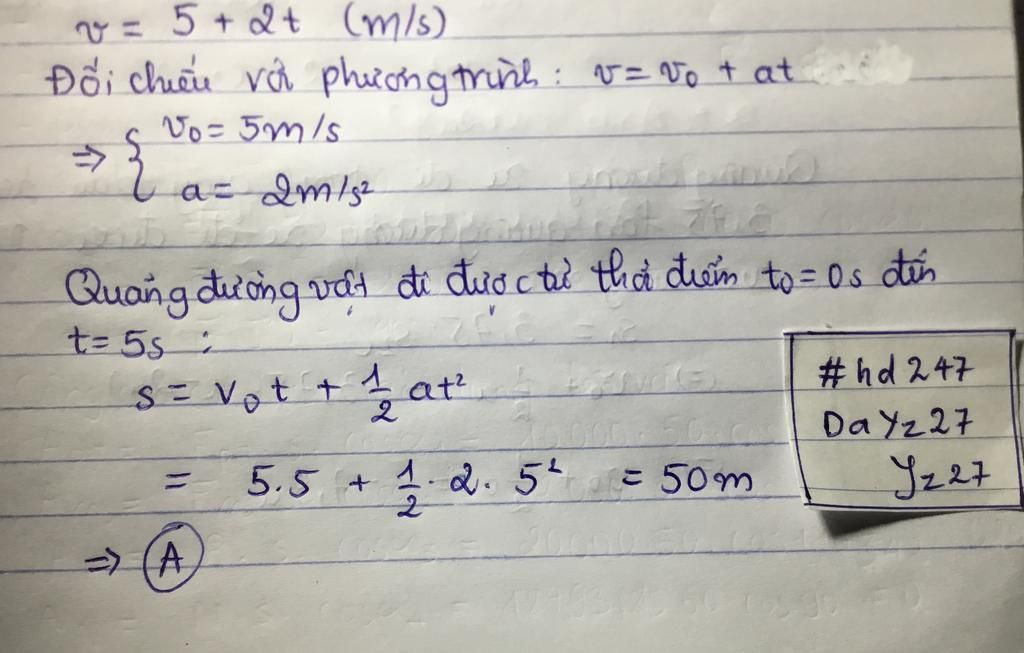 v = 5 + 2t (m/s)
Đối chiếu với phương trình: v = v₀ + at
⇒ { v₀ = 5m/s
a = 2m/s²
Quãng đường vật đi được từ thời điểm t₀ = 0s đến
t = 5s :
s = v₀t + 1/2 at²
= 5.5 + 1/2 . 2 . 5² = 50m
⇒ A
#hd247
DaYz27
Yz27